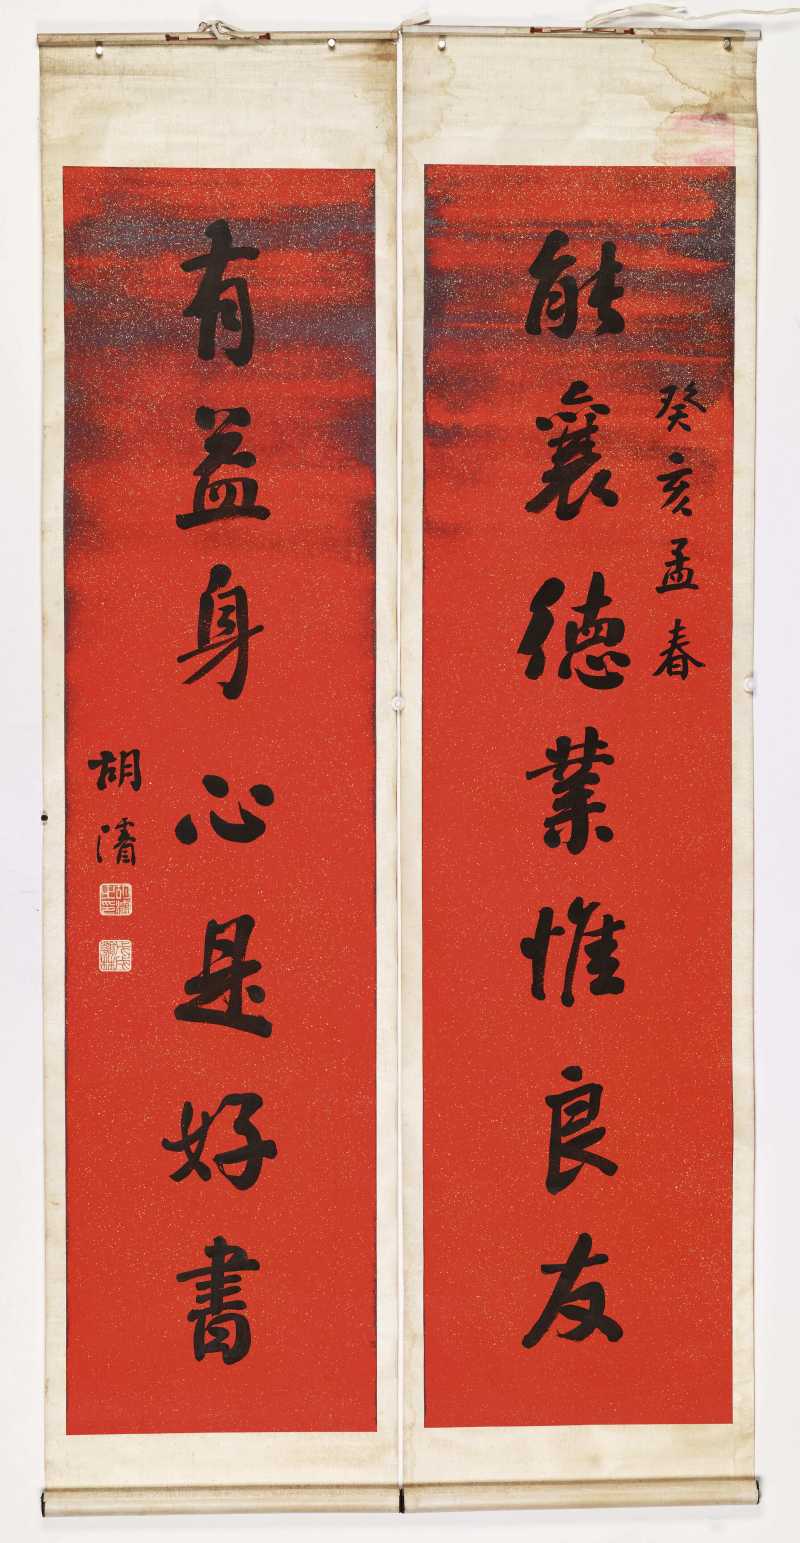 癸亥孟春
能襄德業惟良友
有益身心是好書
胡